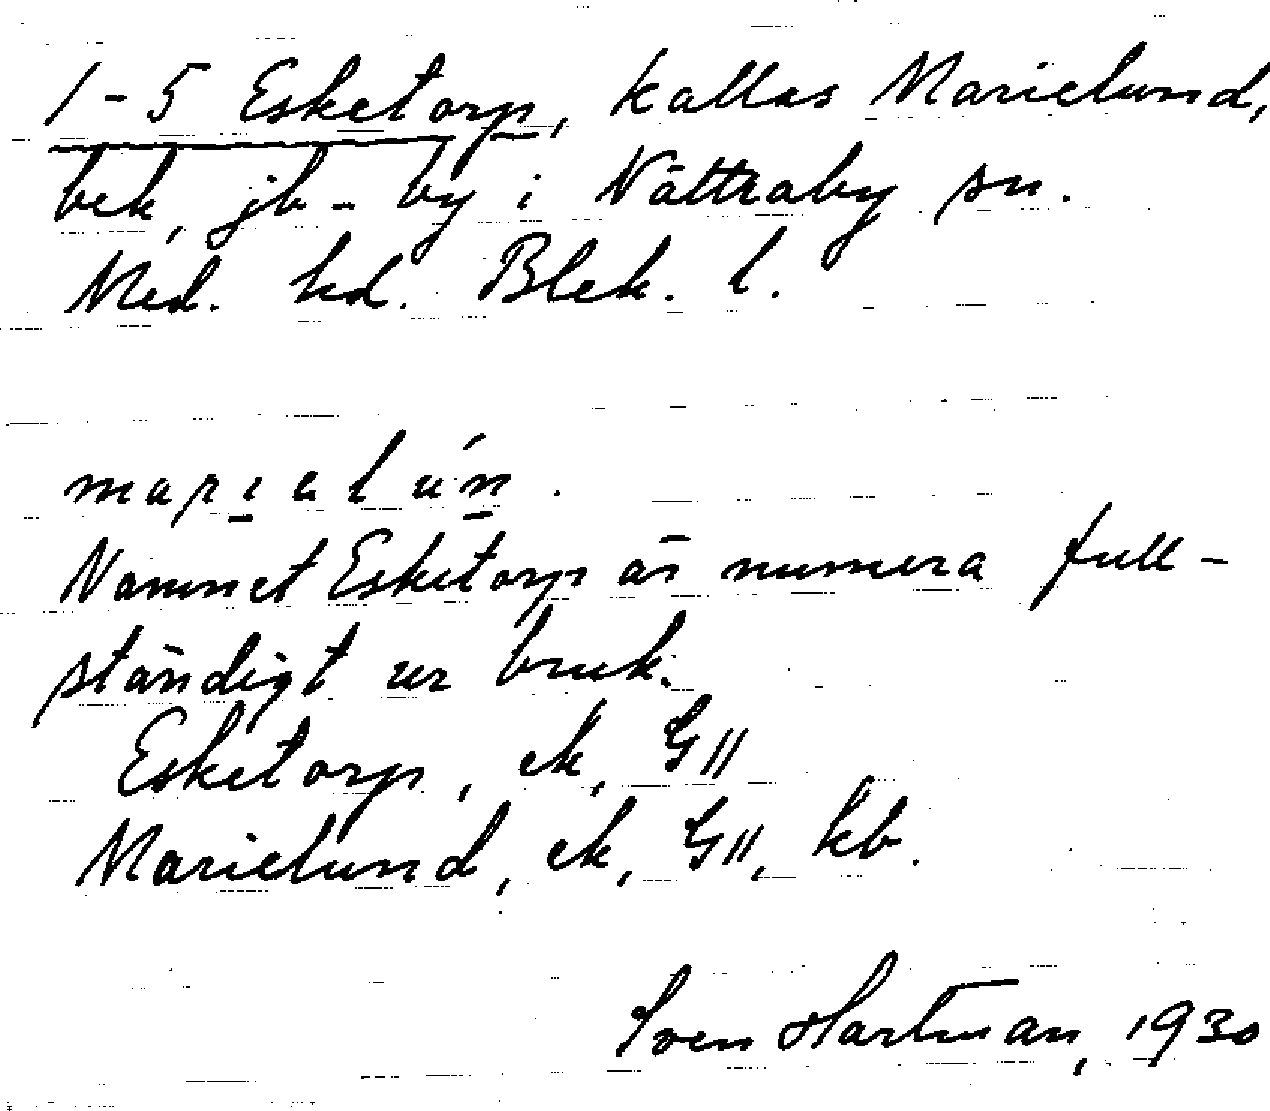 1-5 Esketorp, kallas Marielund,
bek, jb-by i Nättraby sn.
Med. hd. Blek. l.
Namnet Esketorp är numera full-
ständigt ur bruk.
Esketorp, ek, GII
Marielund, ek, GII, kb.
Sven Hartman, 1930